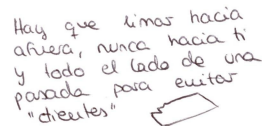 Hay que limar hacia
afuera, nunca hacia ti
y todo el lado de una
pasada para evitar
"dientes"